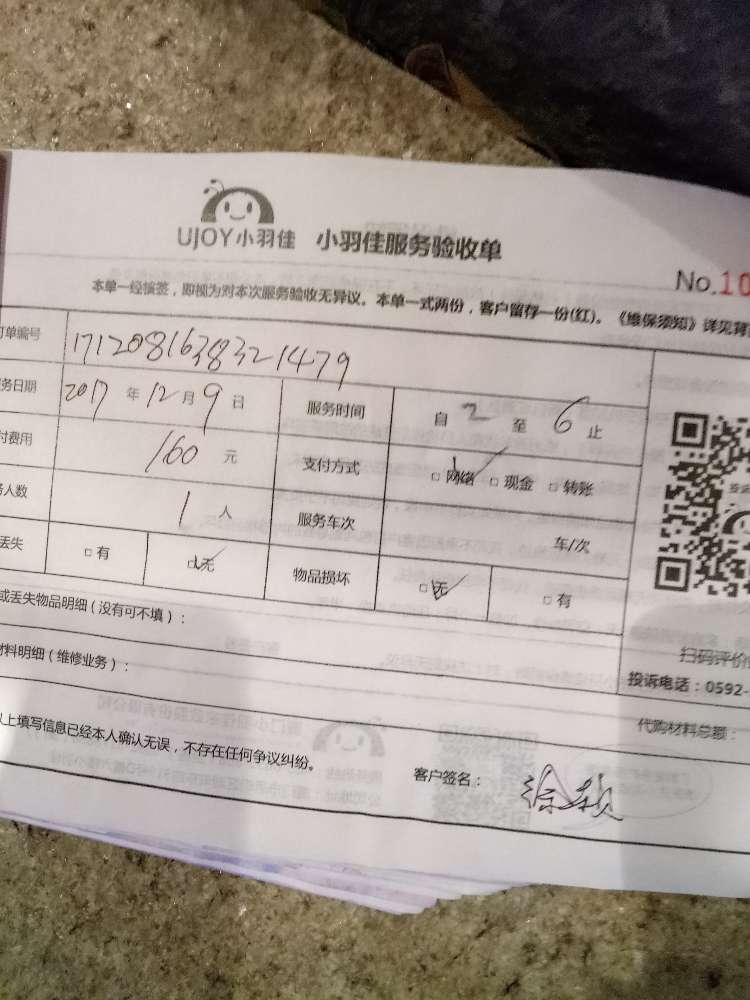 UJOY小羽佳 小羽佳服务验收单
No.10
本单一经签签，即视为对本次服务验收无异议。本单一式两份，客户留存一份(红)。《维保须知》详见背
订单编号 1712081638321479
务日期 2017 年 12 月 9 日 服务时间 自 2 至 6 止
付费用 160 元 支付方式 □网络 □现金 □转账
务人数 1 人 服务车次 车/次
丢失 □有 □无 物品损坏 □无 □有
或丢失物品明细（没有可不填）：
材料明细（维修业务）：
扫码评价
投诉电话：0592-
代购材料总额：
以上填写信息已经本人确认无误，不存在任何争议纠纷。
客户签名：